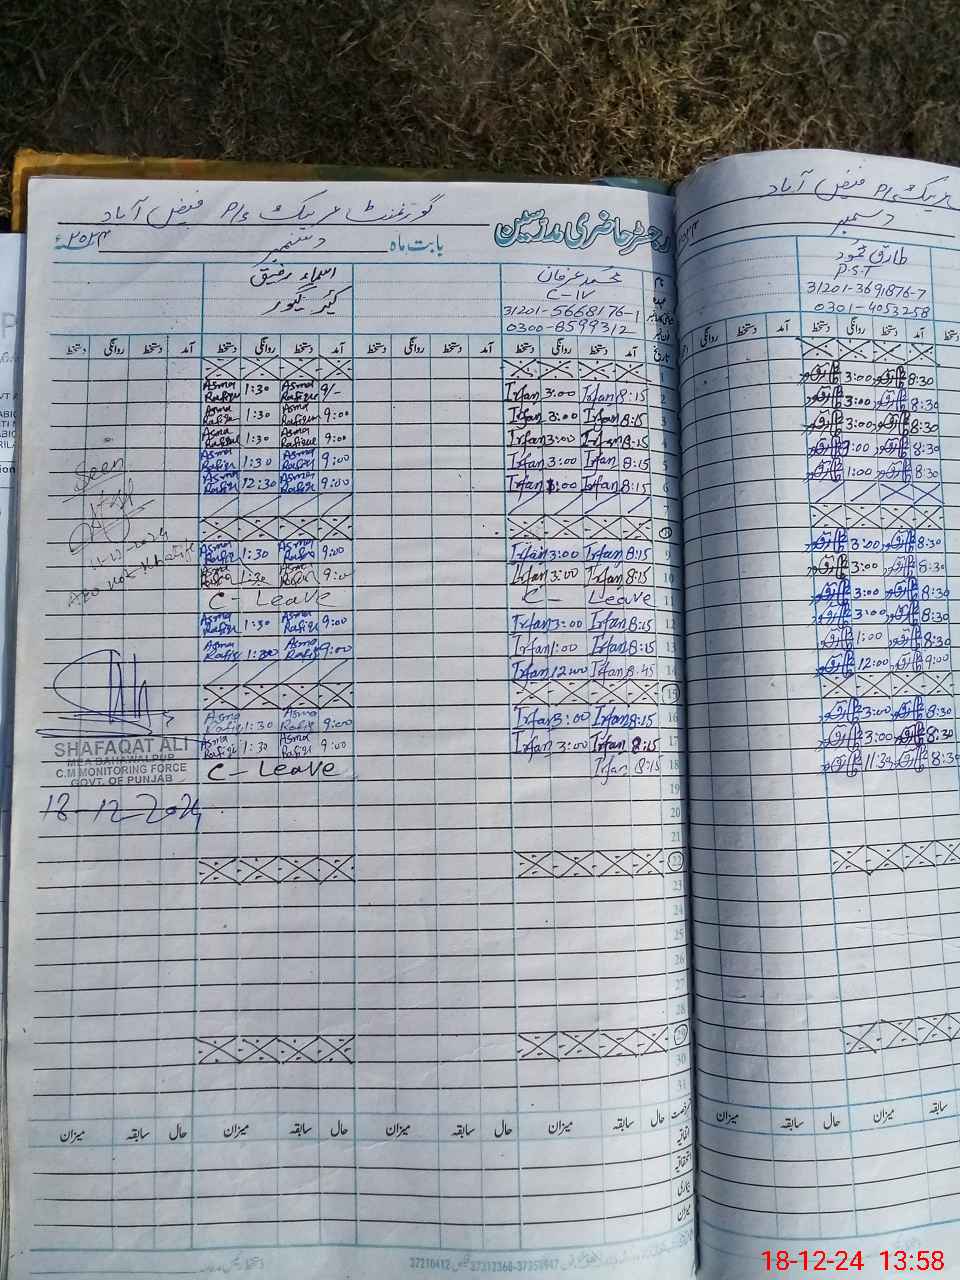 گورنمنٹ
P/S فیض آباد
رجسٹر حاضری مدرسین
بابت ماہ دسمبر ۲۰۲۴ء
محمد عرفان
C-IV
31201-5668176-1
0300-8599312
اسماء رفیق
کیئر گیور
آمد دستخط روانگی دستخط آمد دستخط روانگی دستخط آمد دستخط روانگی دستخط
2 8:15 Irfan 3:00 Irfan 9/- Asma Rafique 1:30 Asma Rafique
3 8:15 Irfan 3:00 Irfan 9:00 Asma Rafique 1:30 Asma Rafique
4 8:15 Irfan 3:00 Irfan 9:00 Asma Rafique 1:30 Asma Rafique
5 8:15 Irfan 3:00 Irfan 9:00 Asma Rafique 1:30 Asma Rafique
6 8:15 Irfan 1:00 Irfan 9:00 Asma Rafique 12:30 Asma Rafique
7
8
9 8:15 Irfan 3:00 Irfan 9:00 Asma Rafiq 1:30 Asma Rafiq
10 8:15 Irfan 3:00 Irfan 9:00 Asma Rafiq 1:30 Asma Rafiq
11 C - Leave C - Leave
12 8:15 Irfan 3:00 Irfan 9:00 Asma Rafiq 1:30 Asma Rafiq
13 8:15 Irfan 1:00 Irfan 9:00 Asma Rafiq 1:30 Asma Rafiq
14 8:45 Irfan 12:00 Irfan
15
16 8:15 Irfan 3:00 Irfan 9:00 Asma Rafiq 1:30 Asma Rafiq
17 8:15 Irfan 3:00 Irfan 9:00 Asma Rafiq 1:30 Asma Rafiq
18 8:15 Irfan C - Leave
19
20
21
22
23
24
25
26
27
28
29
30
31
Seen
SHAFAQAT ALI
MEA BAHAWALPUR
C.M MONITORING FORCE
GOVT. OF PUNJAB
18-12-2024
حال سابقہ میزان حال سابقہ میزان حال سابقہ میزان
اتفاقیہ
استحقاقیہ
بیماری
میزان
37210412 37312368-37358847
P/S فیض آباد
دسمبر
طارق محمود
P.S.T
31201-3691876-7
0301-4053258
آمد دستخط روانگی دستخط دستخط روانگی
8:30 3:00
8:30 3:00
8:30 3:00
8:30 3:00
8:30 1:00
8:30 3:00
8:30 3:00
8:30 3:00
8:30 3:00
8:30 1:00
9:00 12:00
8:30 3:00
8:30 3:00
8:30 11:30
سابقہ میزان حال سابقہ میزان
18-12-24 13:58